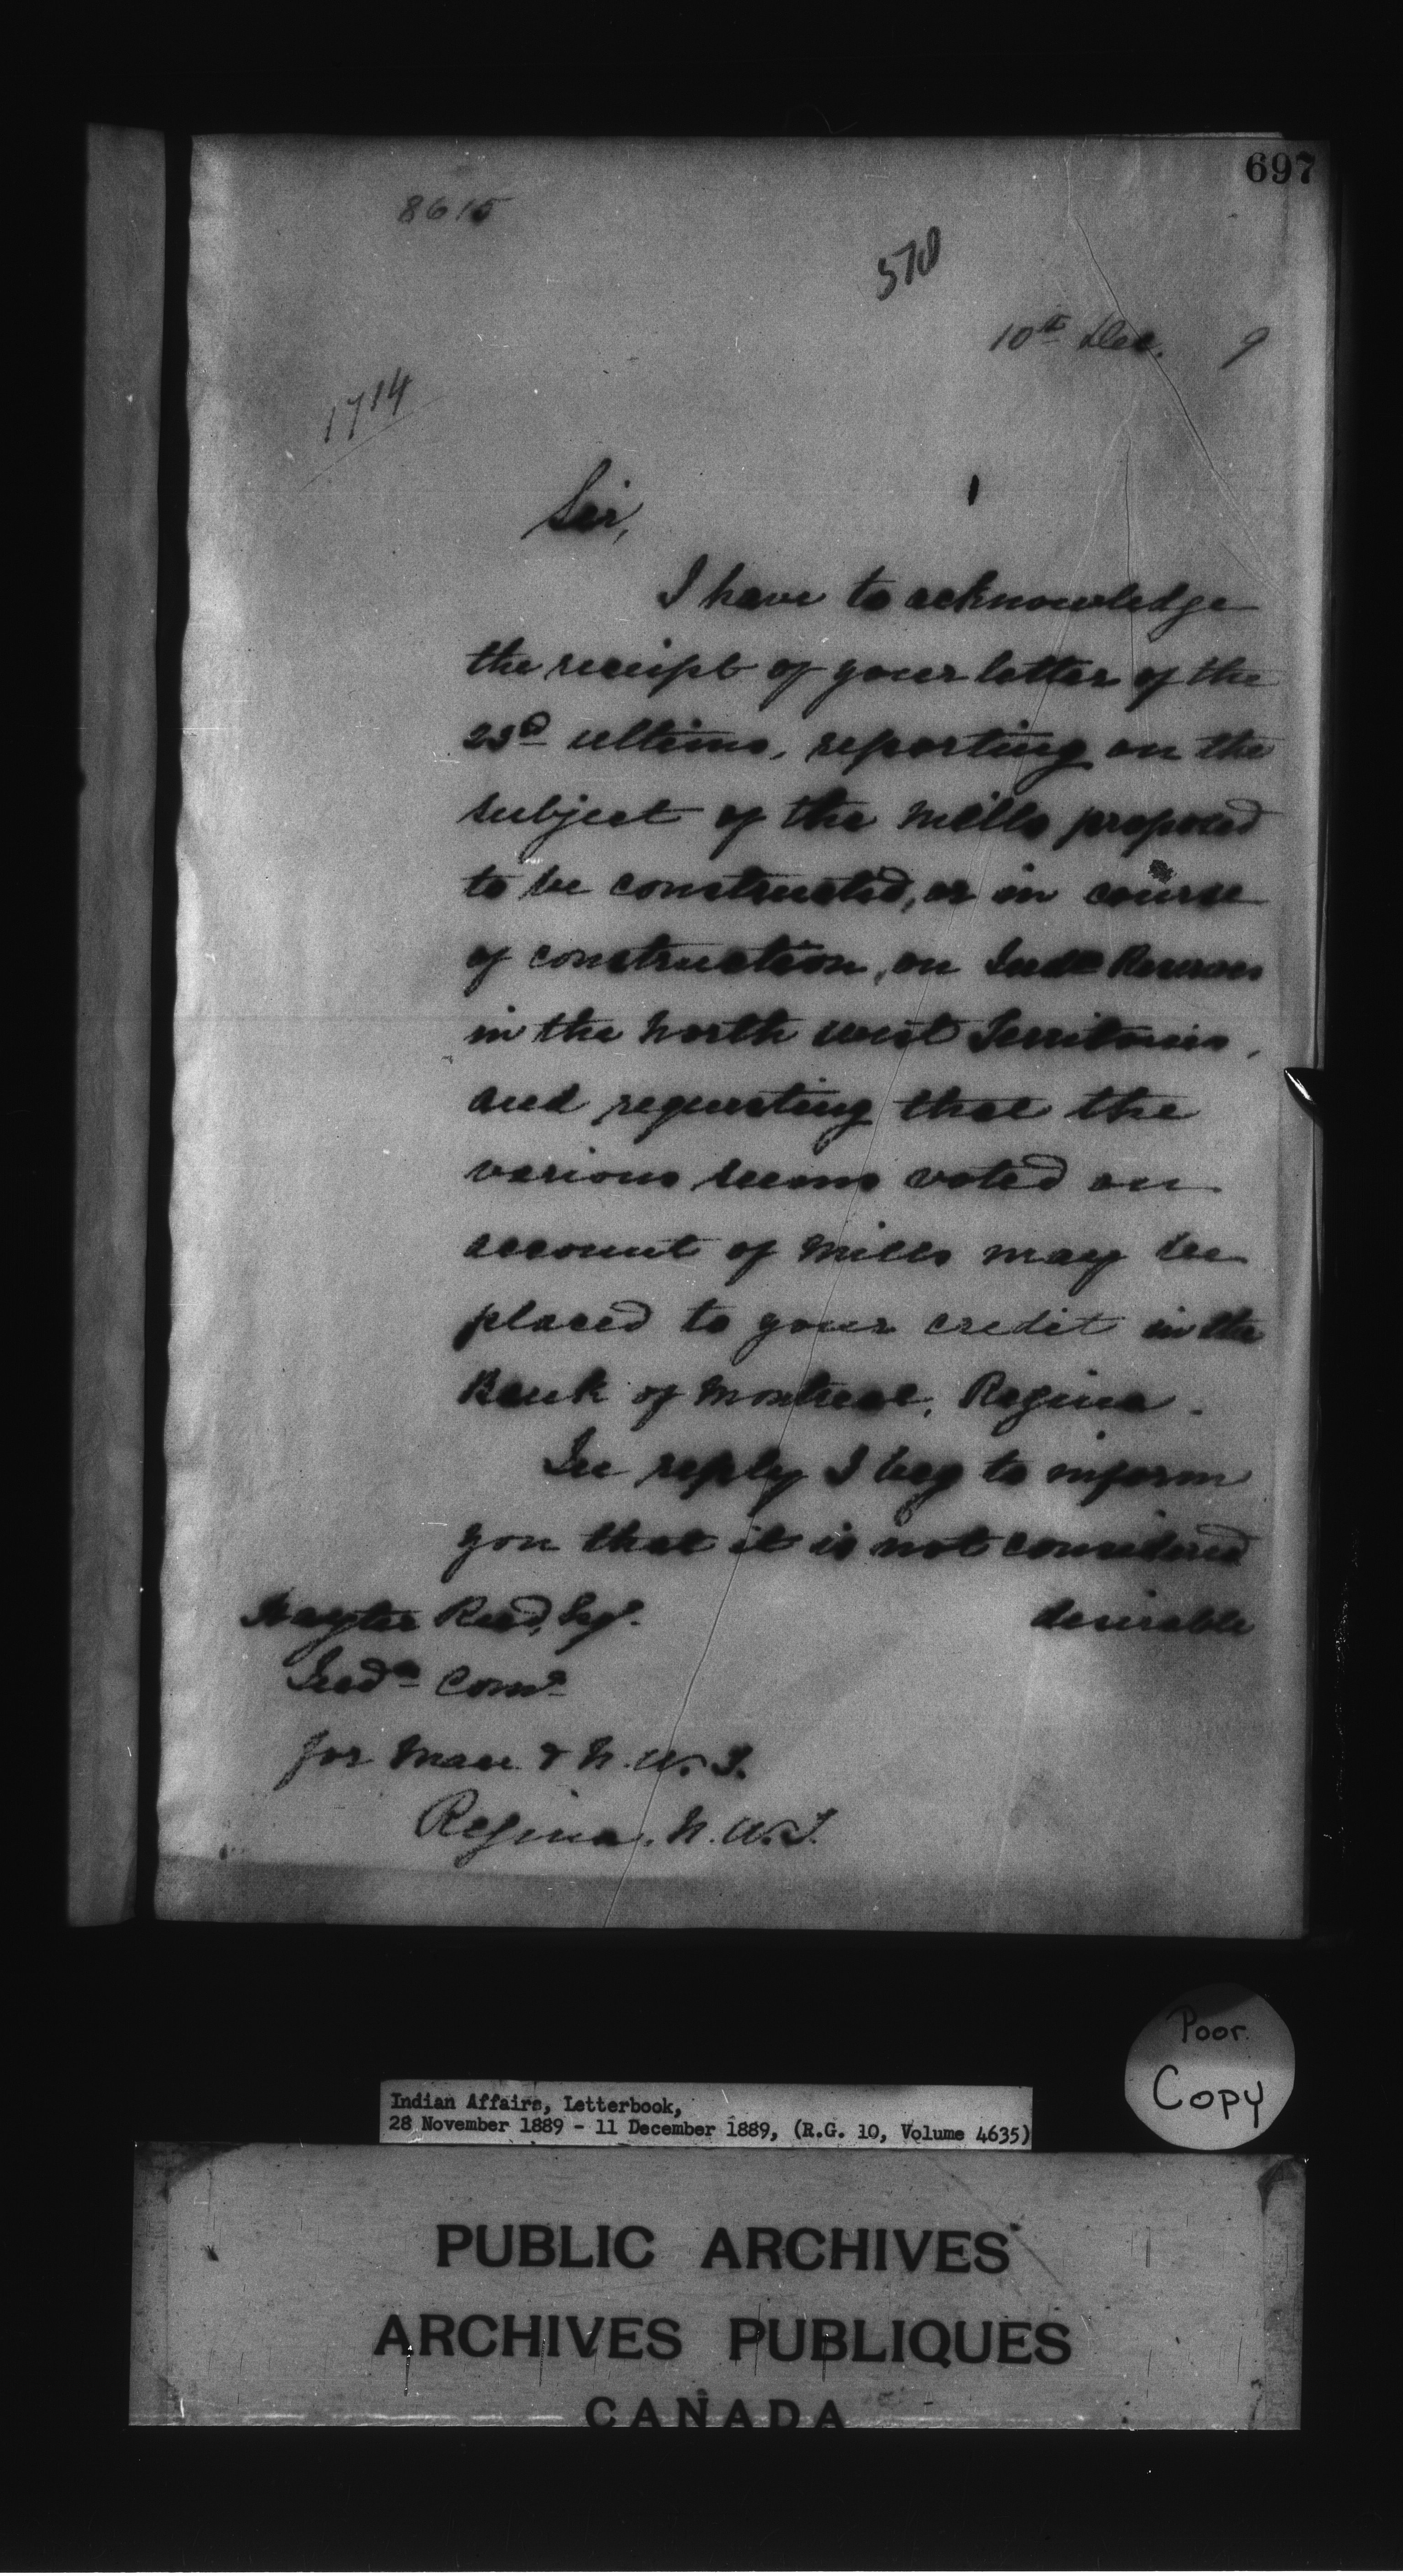 697
8615
578
10th Dec. 9
1714
Sir,
I have to acknowledge
the receipt of your letter of the
23d ultimo, reporting on the
subject of the mills proposed
to be constructed, or in course
of construction, on Indn Reserves
in the North West Territories,
and requesting that the
various sums voted on
account of mills may be
placed to your credit in the
Bank of Montreal, Regina.
In reply I beg to inform
you that it is not considered
desirable
Hayter Reed, Esq.
Indn Comr
for Man & N.W.T.
Regina, N.W.T.
Poor
Copy
Indian Affairs, Letterbook,
28 November 1889 - 11 December 1889, (R.G. 10, Volume 4635)
PUBLIC ARCHIVES
ARCHIVES PUBLIQUES
CANADA